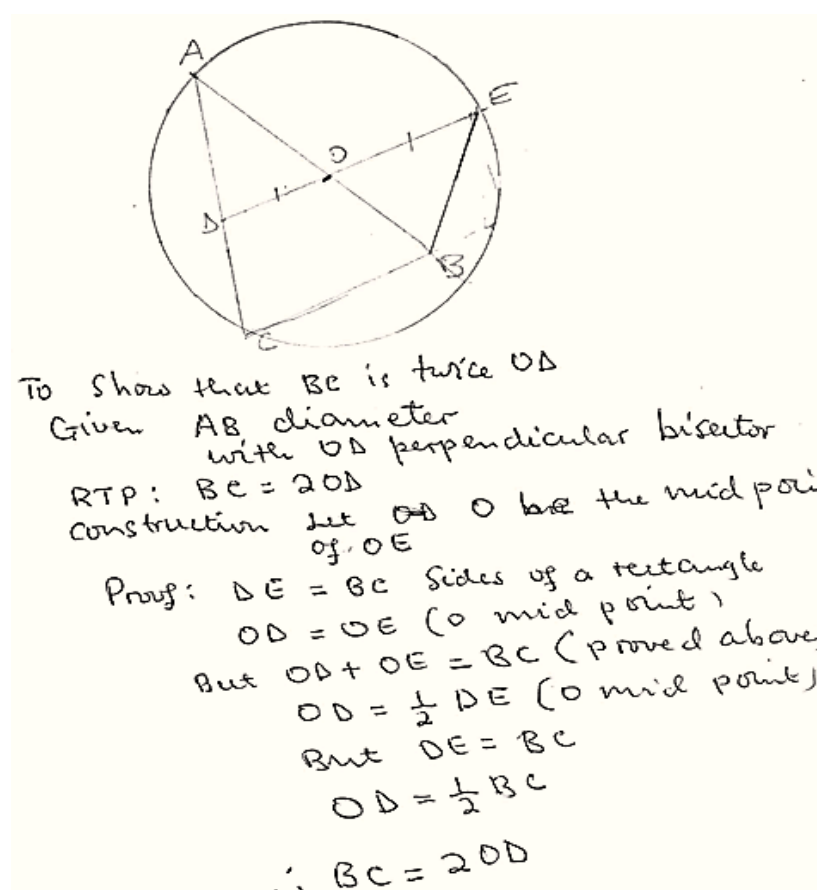 A
E
O
D
B
C
To Show that BC is twice OD
Given AB diameter
with OD perpendicular bisector
RTP: BC = 2OD
construction Let O be the mid poi
of OE
Proof: DE = BC Sides of a rectangle
OD = OE (O mid point)
But OD + OE = BC (proved above,
OD = 1/2 DE (O mid point)
But DE = BC
OD = 1/2 BC
∴ BC = 2OD